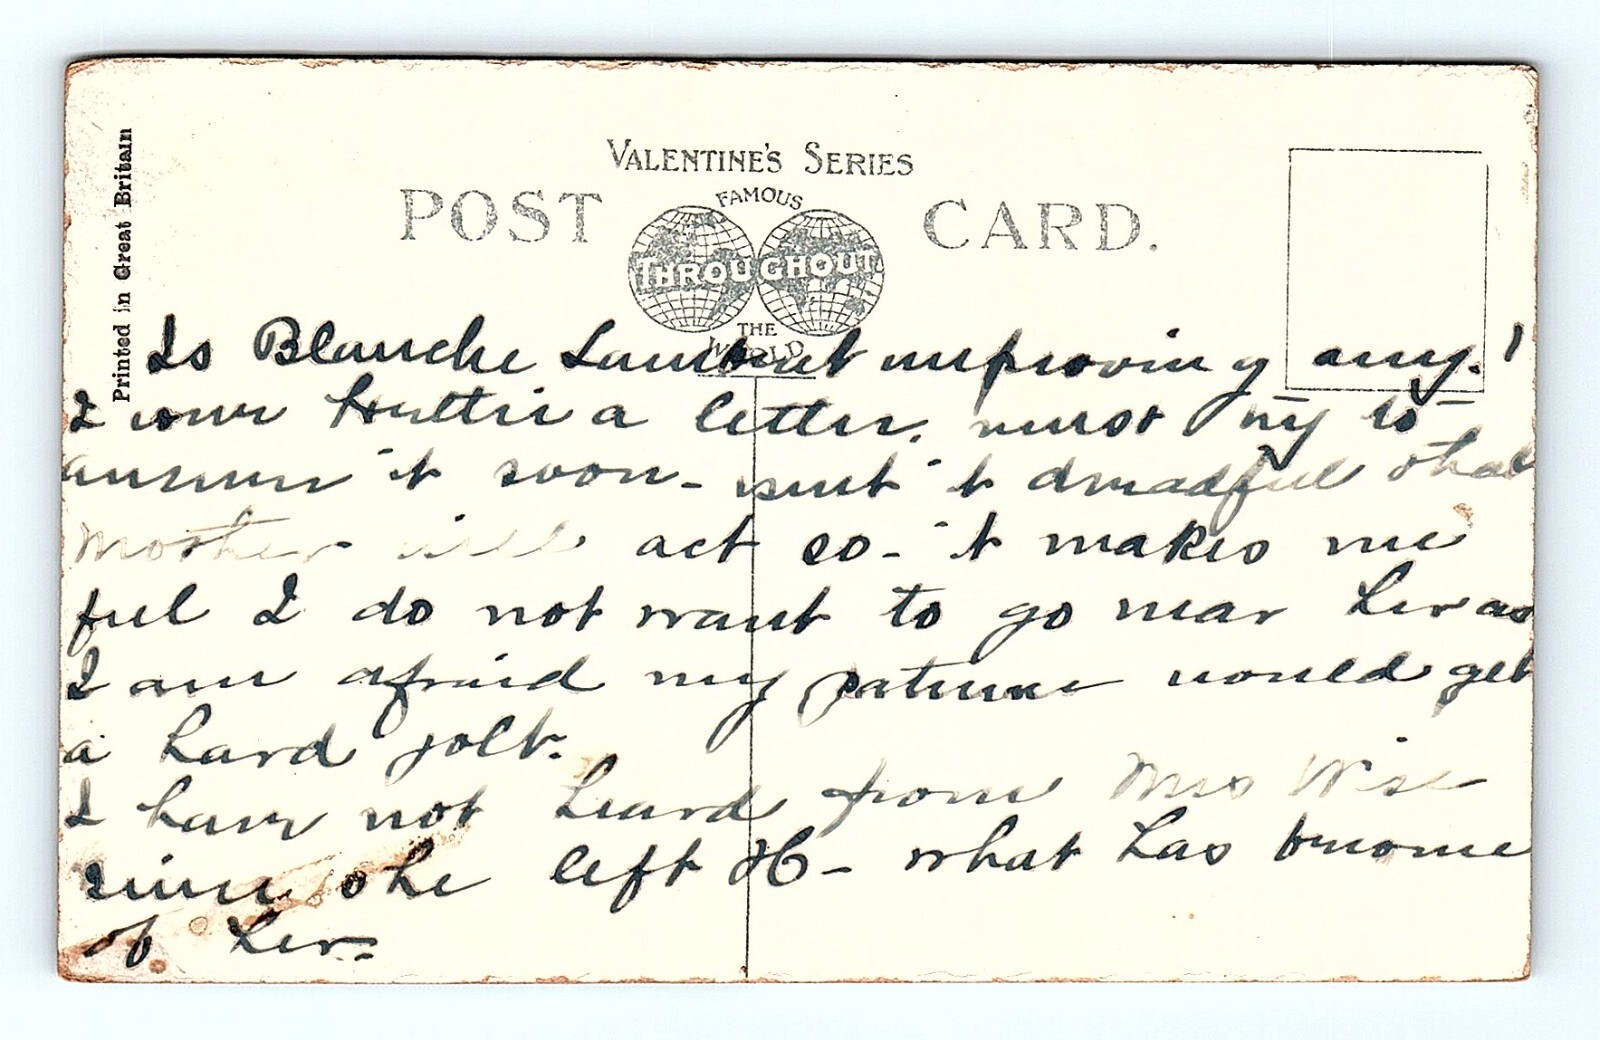 Printed in Great Britain
VALENTINE'S SERIES
POST CARD.
FAMOUS
THROUGHOUT
THE
WORLD
Is Blanche Lambert improving any!
I owe Huttie a letter. must try to
answer it soon - isnt it dreadful that
Mother will act so - it makes me
feel I do not want to go near her as
I am afraid my patience would get
a hard jolt.
I have not heard from Mrs Wise
since she left H - what has become
of her -